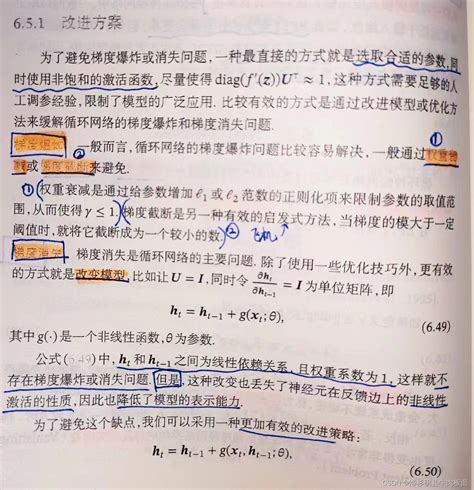 6.5.1 改进方案
为了避免梯度爆炸或消失问题,一种最直接的方式就是选取合适的参数,同
时使用非饱和的激活函数,尽量使得 diag(f′(z))Uᵀ ≈ 1,这种方式需要足够的人
工调参经验,限制了模型的广泛应用.比较有效的方式是通过改进模型或优化方
法来缓解循环网络的梯度爆炸和梯度消失问题.
①
梯度爆炸 一般而言,循环网络的梯度爆炸问题比较容易解决,一般通过权重衰
减或梯度截断来避免.
① 权重衰减是通过给参数增加 ℓ₁ 或 ℓ₂ 范数的正则化项来限制参数的取值范
围,从而使得 γ ≤ 1.梯度截断是另一种有效的启发式方法,当梯度的模大于一定
阈值时,就将它截断成为一个较小的数. ②
梯度消失 梯度消失是循环网络的主要问题.除了使用一些优化技巧外,更有效
的方式就是改变模型,比如让 U = I,同时令 ∂hₜ/∂hₜ₋₁ = I 为单位矩阵,即
hₜ = hₜ₋₁ + g(xₜ; θ),
(6.49)
其中 g(·) 是一个非线性函数,θ 为参数.
公式(6.49)中,hₜ 和 hₜ₋₁ 之间为线性依赖关系,且权重系数为 1,这样就不
存在梯度爆炸或消失问题.但是,这种改变也丢失了神经元在反馈边上的非线性
激活的性质,因此也降低了模型的表示能力.
为了避免这个缺点,我们可以采用一种更加有效的改进策略:
hₜ = hₜ₋₁ + g(xₜ, hₜ₋₁; θ),
(6.50)